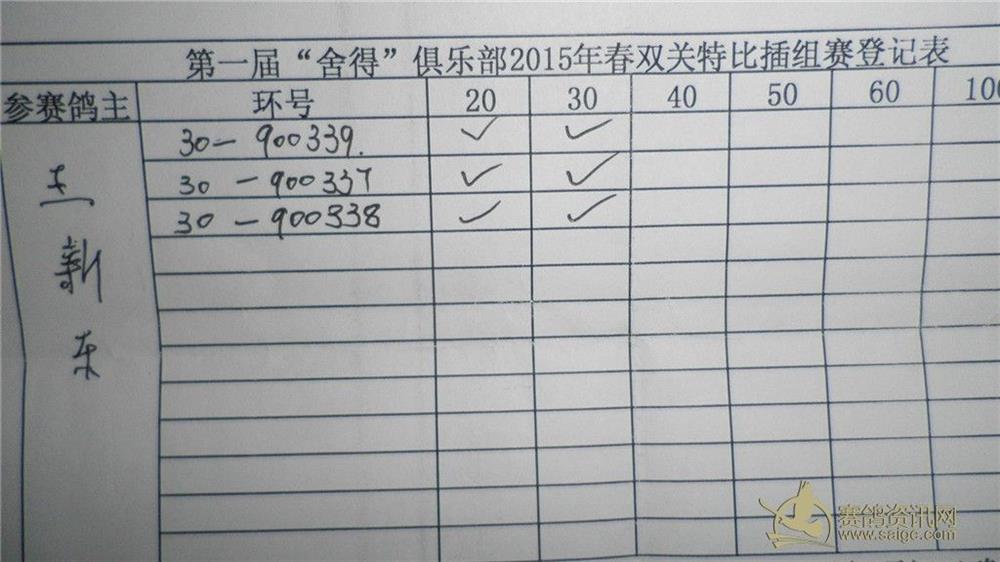 第一届“舍得”俱乐部2015年春双关特比插组赛登记表
参赛鸽主 环号 20 30 40 50 60 100
30-900339. ✓ ✓
30-900337 ✓ ✓
30-900338 ✓ ✓
王新东
赛鸽资讯网
www.saigc.com